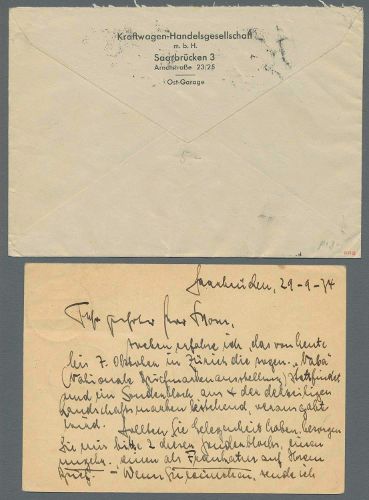 Kraftwagen-Handelsgesellschaft
m. b. H.
Saarbrücken 3
Arndtstraße 23/25
Ost-Garage
5-
Saarbrücken, 29-9-34
Sehr geehrter Herr
soeben erfahre ich, das von heute
bis 7. Oktober in Zürich die sogen. "Naba"
(Nationale Briefmarkenausstellung) stattfindet
und ein Sonderblock aus 4 der derzeitigen
Landschaftsmarken bestehend, verausgabt
wird. Sollten Sie Gelegenheit haben, besorgen
Sie mir bitte 2 dieser Sonderblocks, einen
ungebr. einen als Frankatur auf Ihrem
Brief. - Wenn Sie wünschen, sende ich